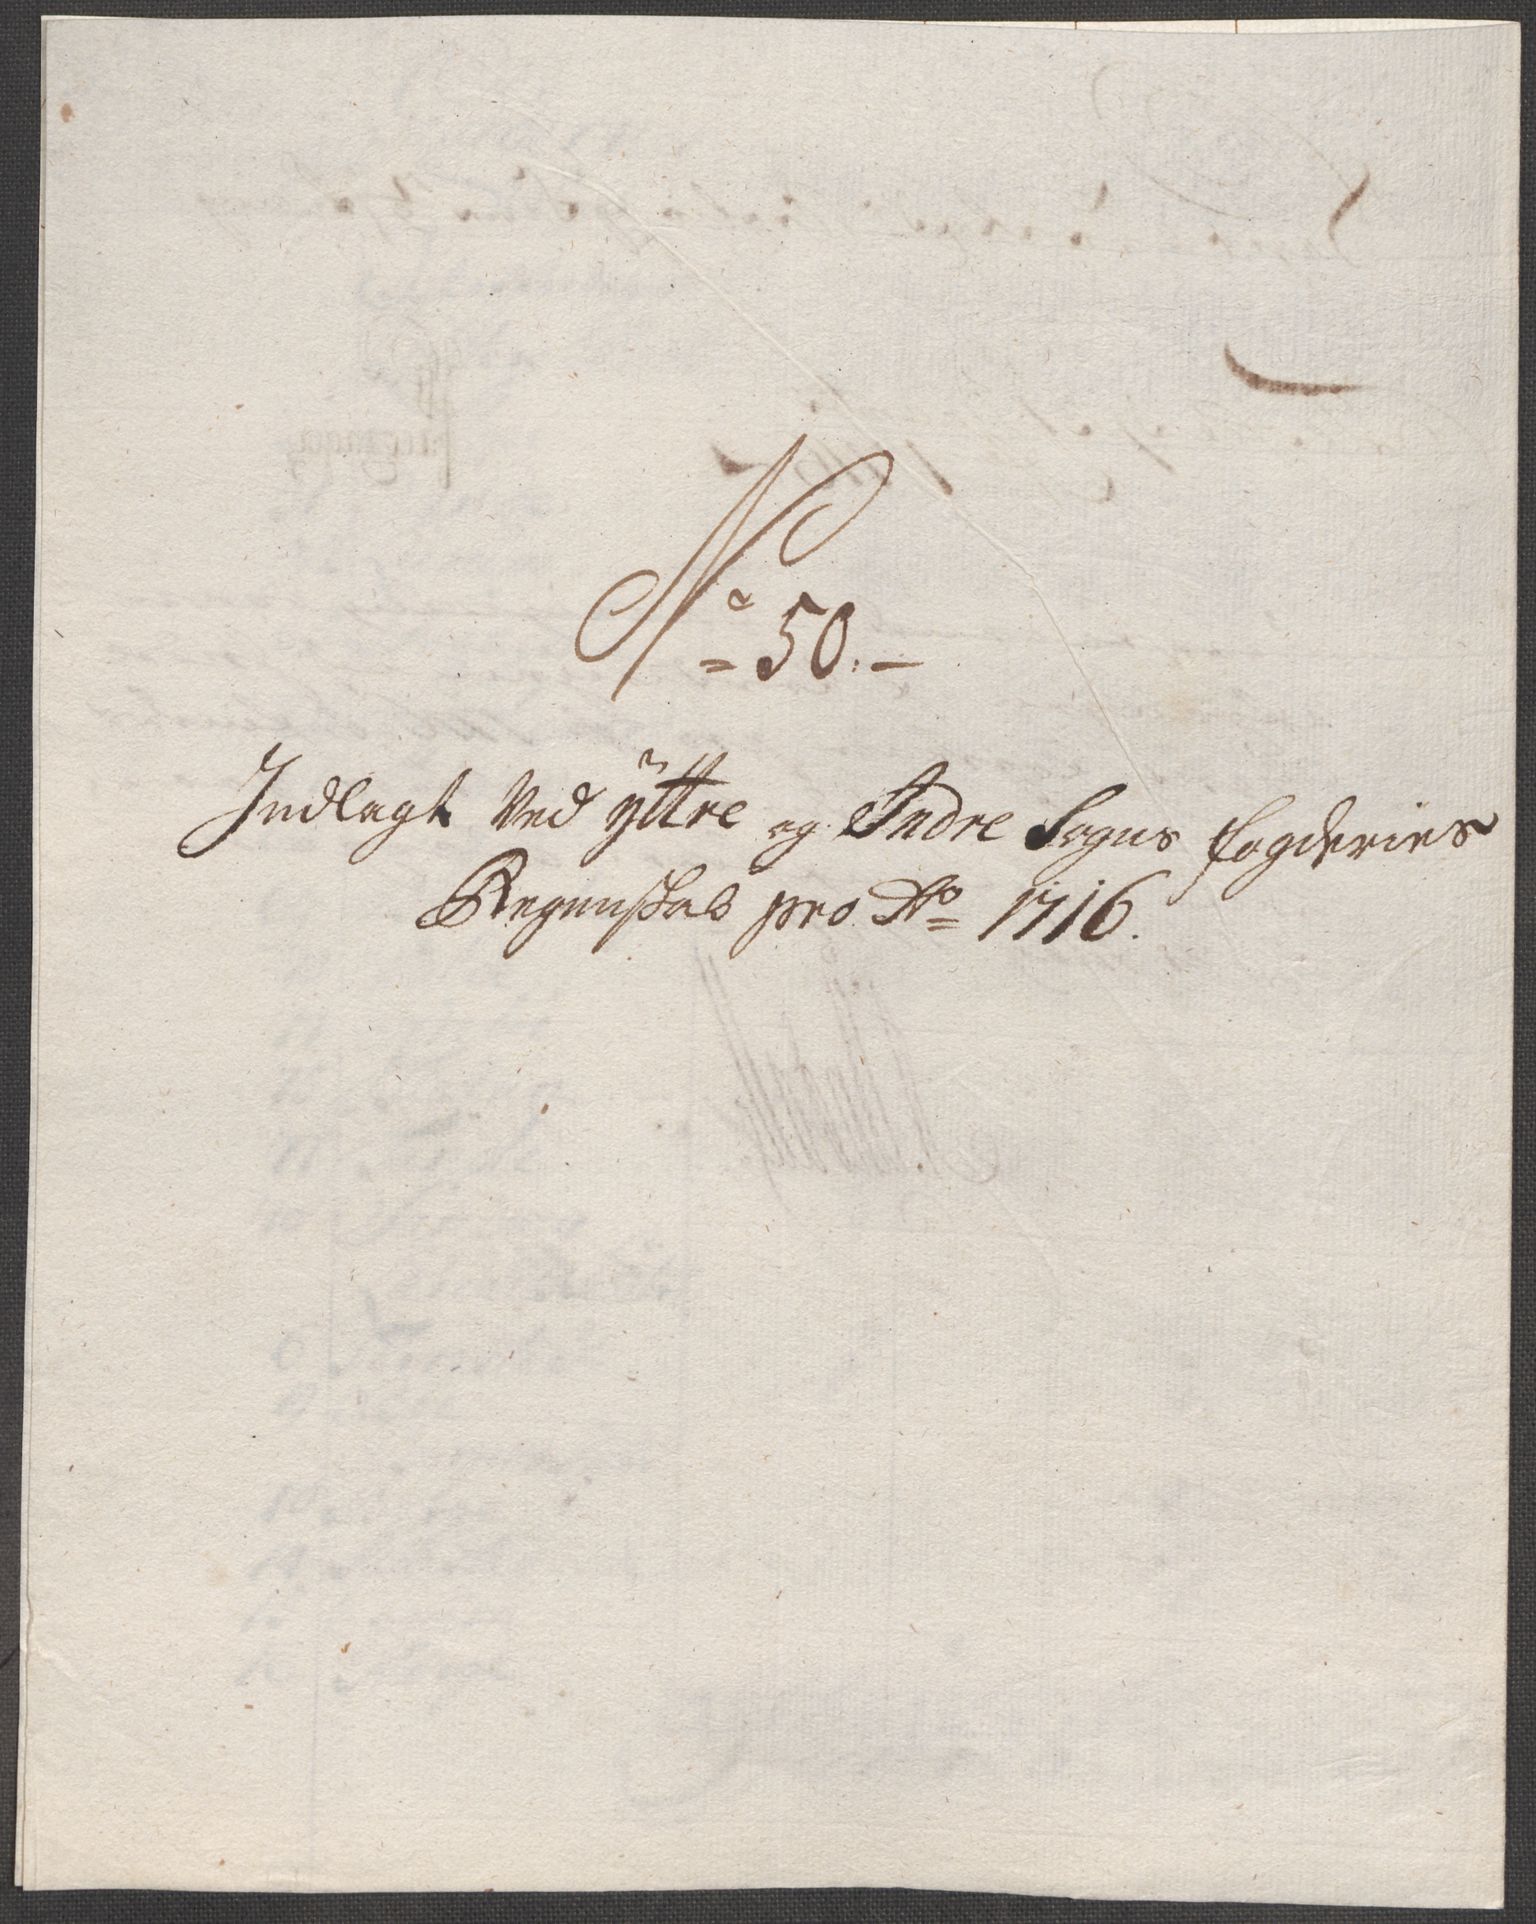 No 50.
Indlagt Ved ÿttre og Indre Sogns fogderies
Regenskab pro Ao 1716.